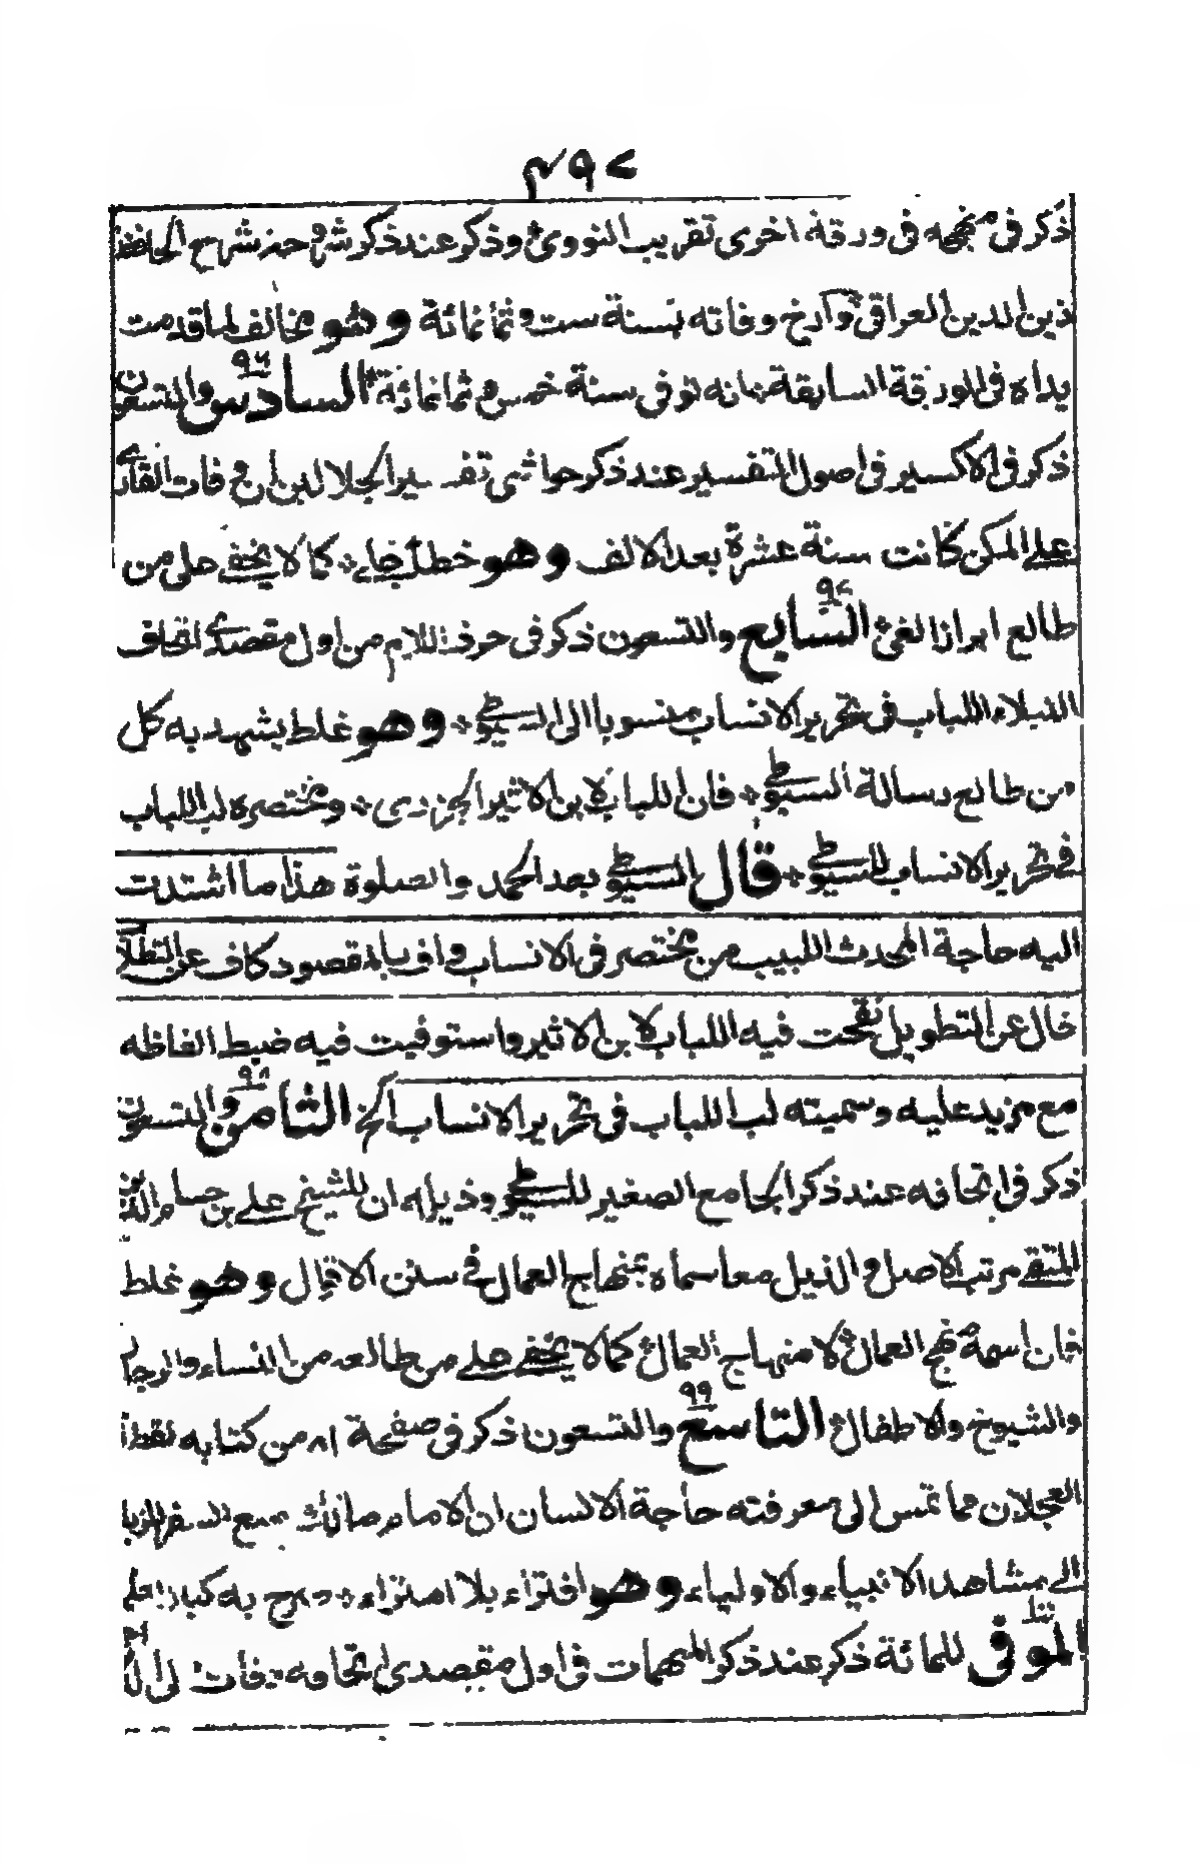 ٢٩٧
ذكر فى منهجه فى ورقة اخرى تقريب النووى وذكر عند ذكر شروحه شرح الحافظ
زين الدين العراقى وارخ وفاته بسنة ست وثمانمائة وهو مخالف لما قدمت
يداه فى الورقة السابقة من انه توفى سنة خمس وثمانمائة السادس ٩٦ والتسعون
ذكر فى الاكسير فى اصول التفسير عند ذكر حواشى تفسير الجلالين ان وفات القارى
على المكى كانت سنة عشرة بعد الالف وهو خطأ جاء كما لا يخفى على من
طالع ابراز الغى السابع ٩٧ والتسعون ذكر فى حرف اللام من اول مقصدى اتحاف
النبلاء اللباب فى تحرير الانساب منسوبا الى السيوطى وهو غلط يشهد به كل
من طالع رسالة السيوطى فان اللباب لابن الاثير الجزرى ومختصره لب اللباب
فى تحرير الانساب للسيوطى قال السيوطى بعد الحمد والصلوة هذا ما اشتدت
اليه حاجة المحدث اللبيب من مختصر فى الانساب واف بالمقصود كاف عن التطلاب
خال عن التطويل نقحت فيه اللباب لابن الاثير واستوفيت فيه ضبط الفاظه
مع مزيد عليه وسميته لب اللباب فى تحرير الانساب الخ الثامن ٩٨ والتسعون
ذكر فى اتحافه عند ذكر الجامع الصغير للسيوطى وذيله ان للشيخ على بن حسام الدين
المتقى مرتب الاصل والذيل معا سماه بمنهاج العمال فى سنن الاقوال وهو غلط
فان اسمه منهج العمال لا منهاج العمال كما لا يخفى على من طالعه من النساء والرجال
والشيوخ والاطفال التاسع ٩٩ والتسعون ذكر فى صفحة ٨١ من كتابه لقطة
العجلان مما تمس الى معرفته حاجة الانسان ان الامام مالك منع السفر للزيارة
الى مشاهد الانبياء والاولياء وهو افتراء بلا امتراء صرح به كبار العلماء
الموفى للمائة ذكر عند ذكر المبهمات فى اول مقصدى اتحافه